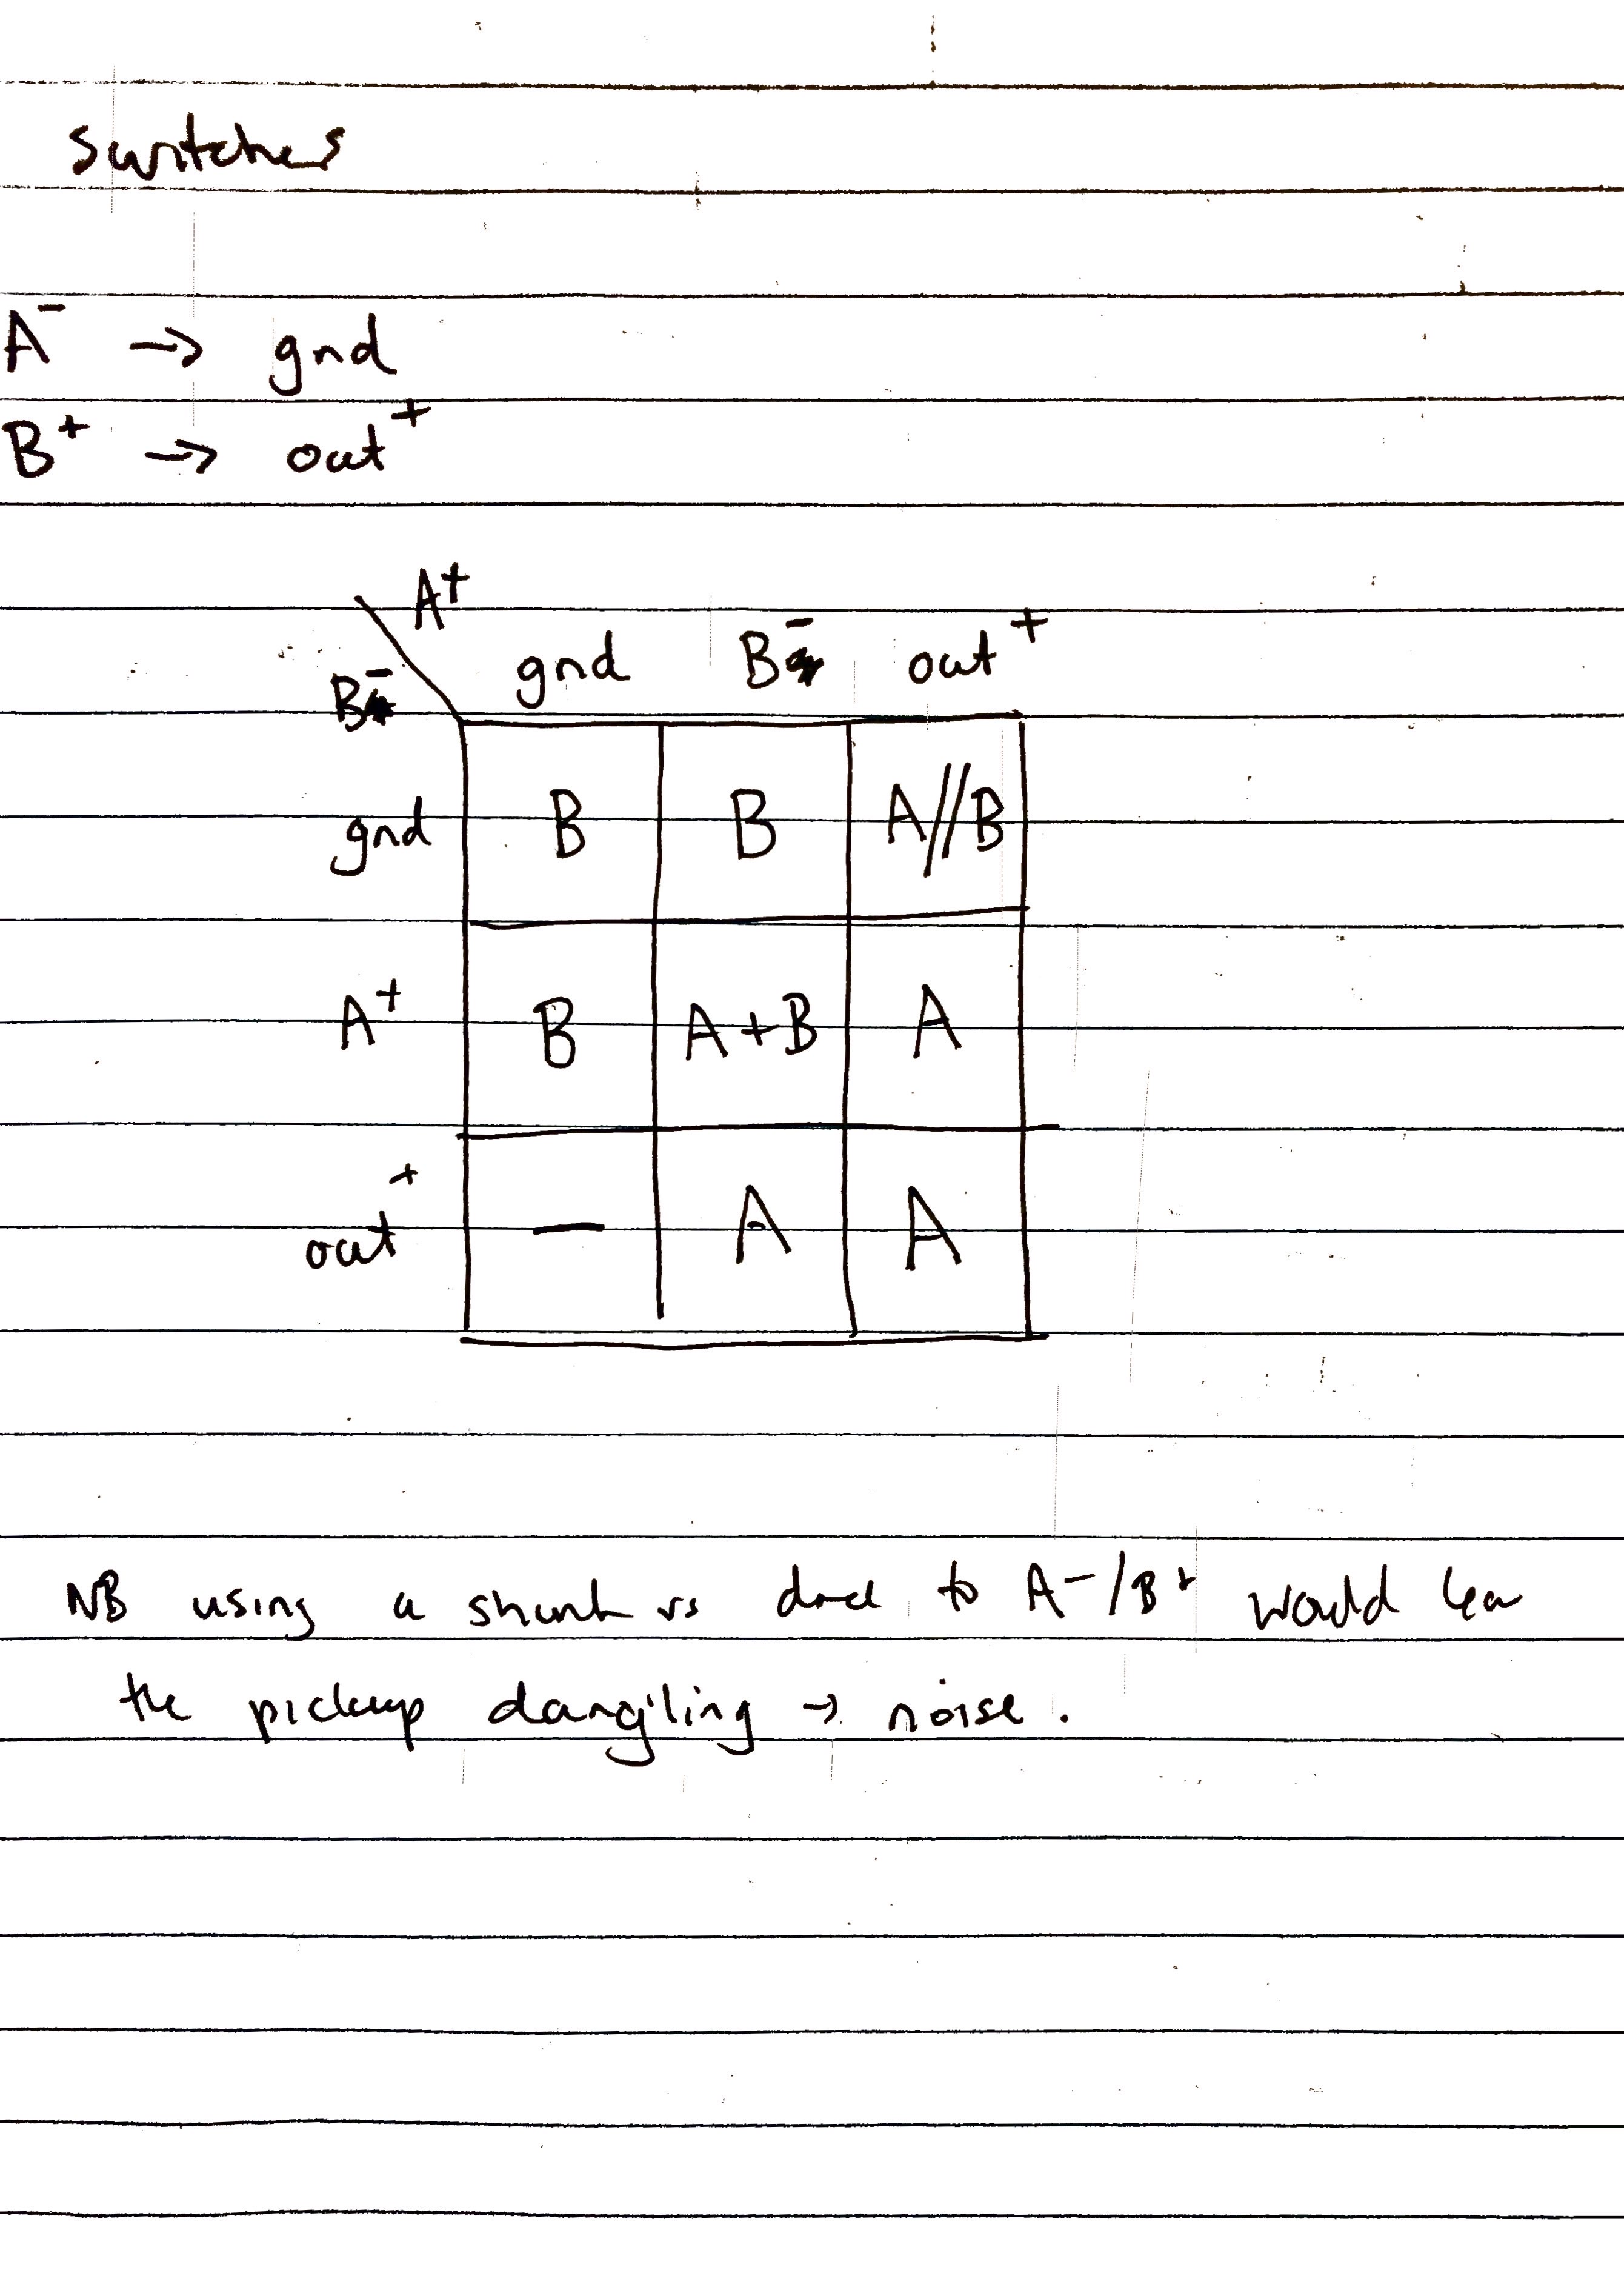 switches
A⁻ → gnd
B⁺ → out⁺
A⁺
B⁻ gnd B⁻ out⁺
gnd B B A//B
A⁺ B A+B A
out⁺ — A A
NB using a shunt vs to A⁻/B⁺ would
the pickup dangling → noise.